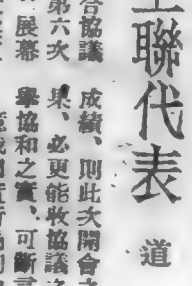 聯代表
道
成績、則此次開會
果、必更能收協議
擧協和之實、可斷言
合協議
第六次
展幕